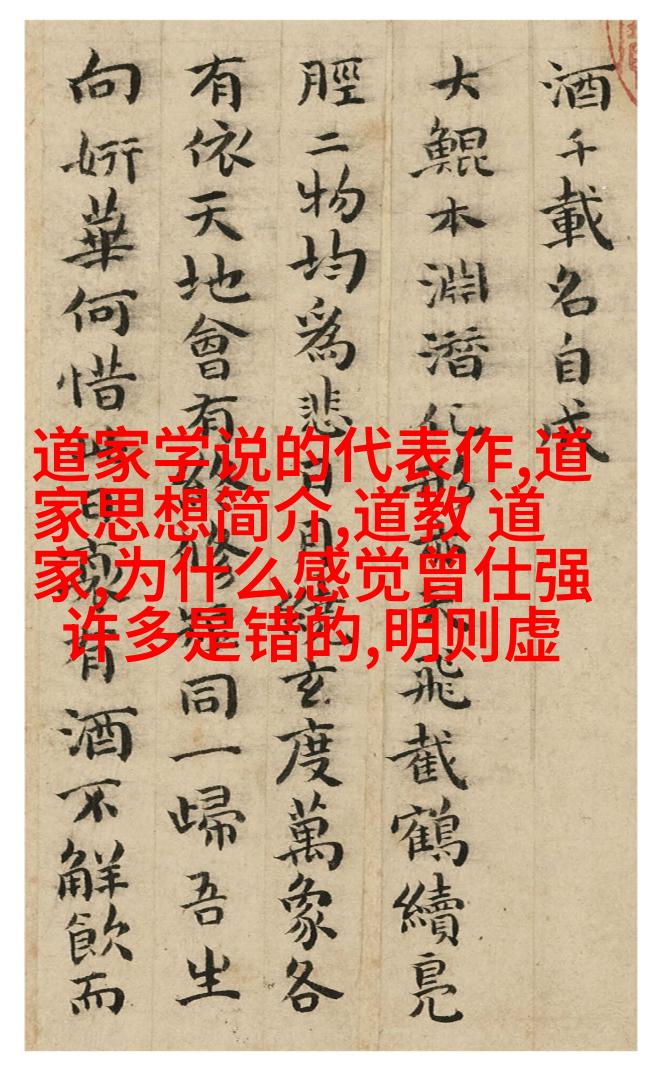 酒千載名自成
大鯤本淵潛化形天飛截鶴續鳧
脛二物均爲悲日月玄度萬象各
有依天地會有修同一歸吾生
向妍華何惜有酒不解飲而
道家学说的代表作,道
家思想简介,道教 道
家,为什么感觉曾仕强
许多是错的,明则虚